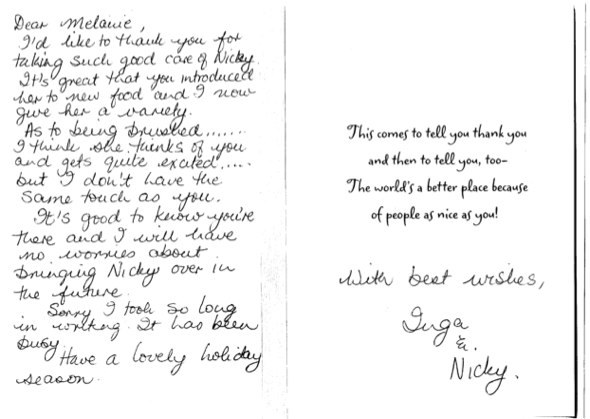 Dear Melanie,
I'd like to thank you for
taking such good care of Nicky.
It's great that you introduced
her to new food and I now
give her a variety.
As to being brushed......
I think she thinks of you
and gets quite excited.....
but I don't have the
same touch as you.
It's good to know you're
there and I will have
no worries about
bringing Nicky over in
the future.
Sorry I took so long
in writing. It has been
busy.
Have a lovely holiday
season.
This comes to tell you thank you
and then to tell you, too-
The world's a better place because
of people as nice as you!
With best wishes,
Inga
&
Nicky.